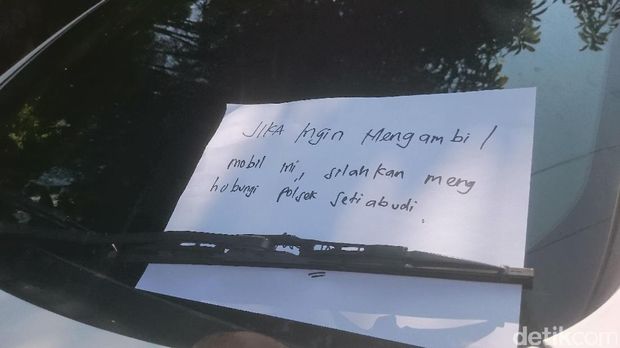 JIKA Ingin Mengambil
mobil ini, silahkan meng
hubungi polsek Setiabudi.
detikcom